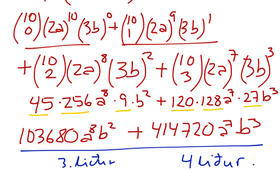 (10 0)(2a)^10(3b)^0 + (10 1)(2a)^9(3b)^1
+(10 2)(2a)^8(3b)^2 + (10 3)(2a)^7(3b)^3
45·256a^8·9·b^2 + 120·128a^7·27b^3
103680a^8b^2 + 414720a^7b^3
3. liður 4 liður.